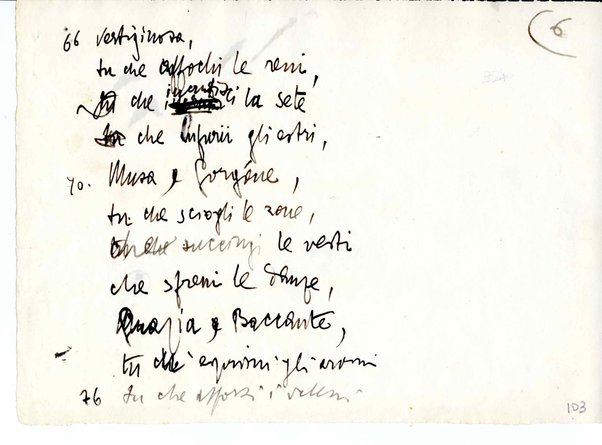 6
66 vertiginosa,
tu che affochi le reni,
tu che incrudisci la sete
tu che infurii gli estri,
70. Musa, Gorgóne,
tu che sciogli le zone,
tu che succingi le vesti
che sfreni le danze,
Grazia, Baccante,
tu ch'esprimi gli aromi
76 tu che afforzi i veleni
103